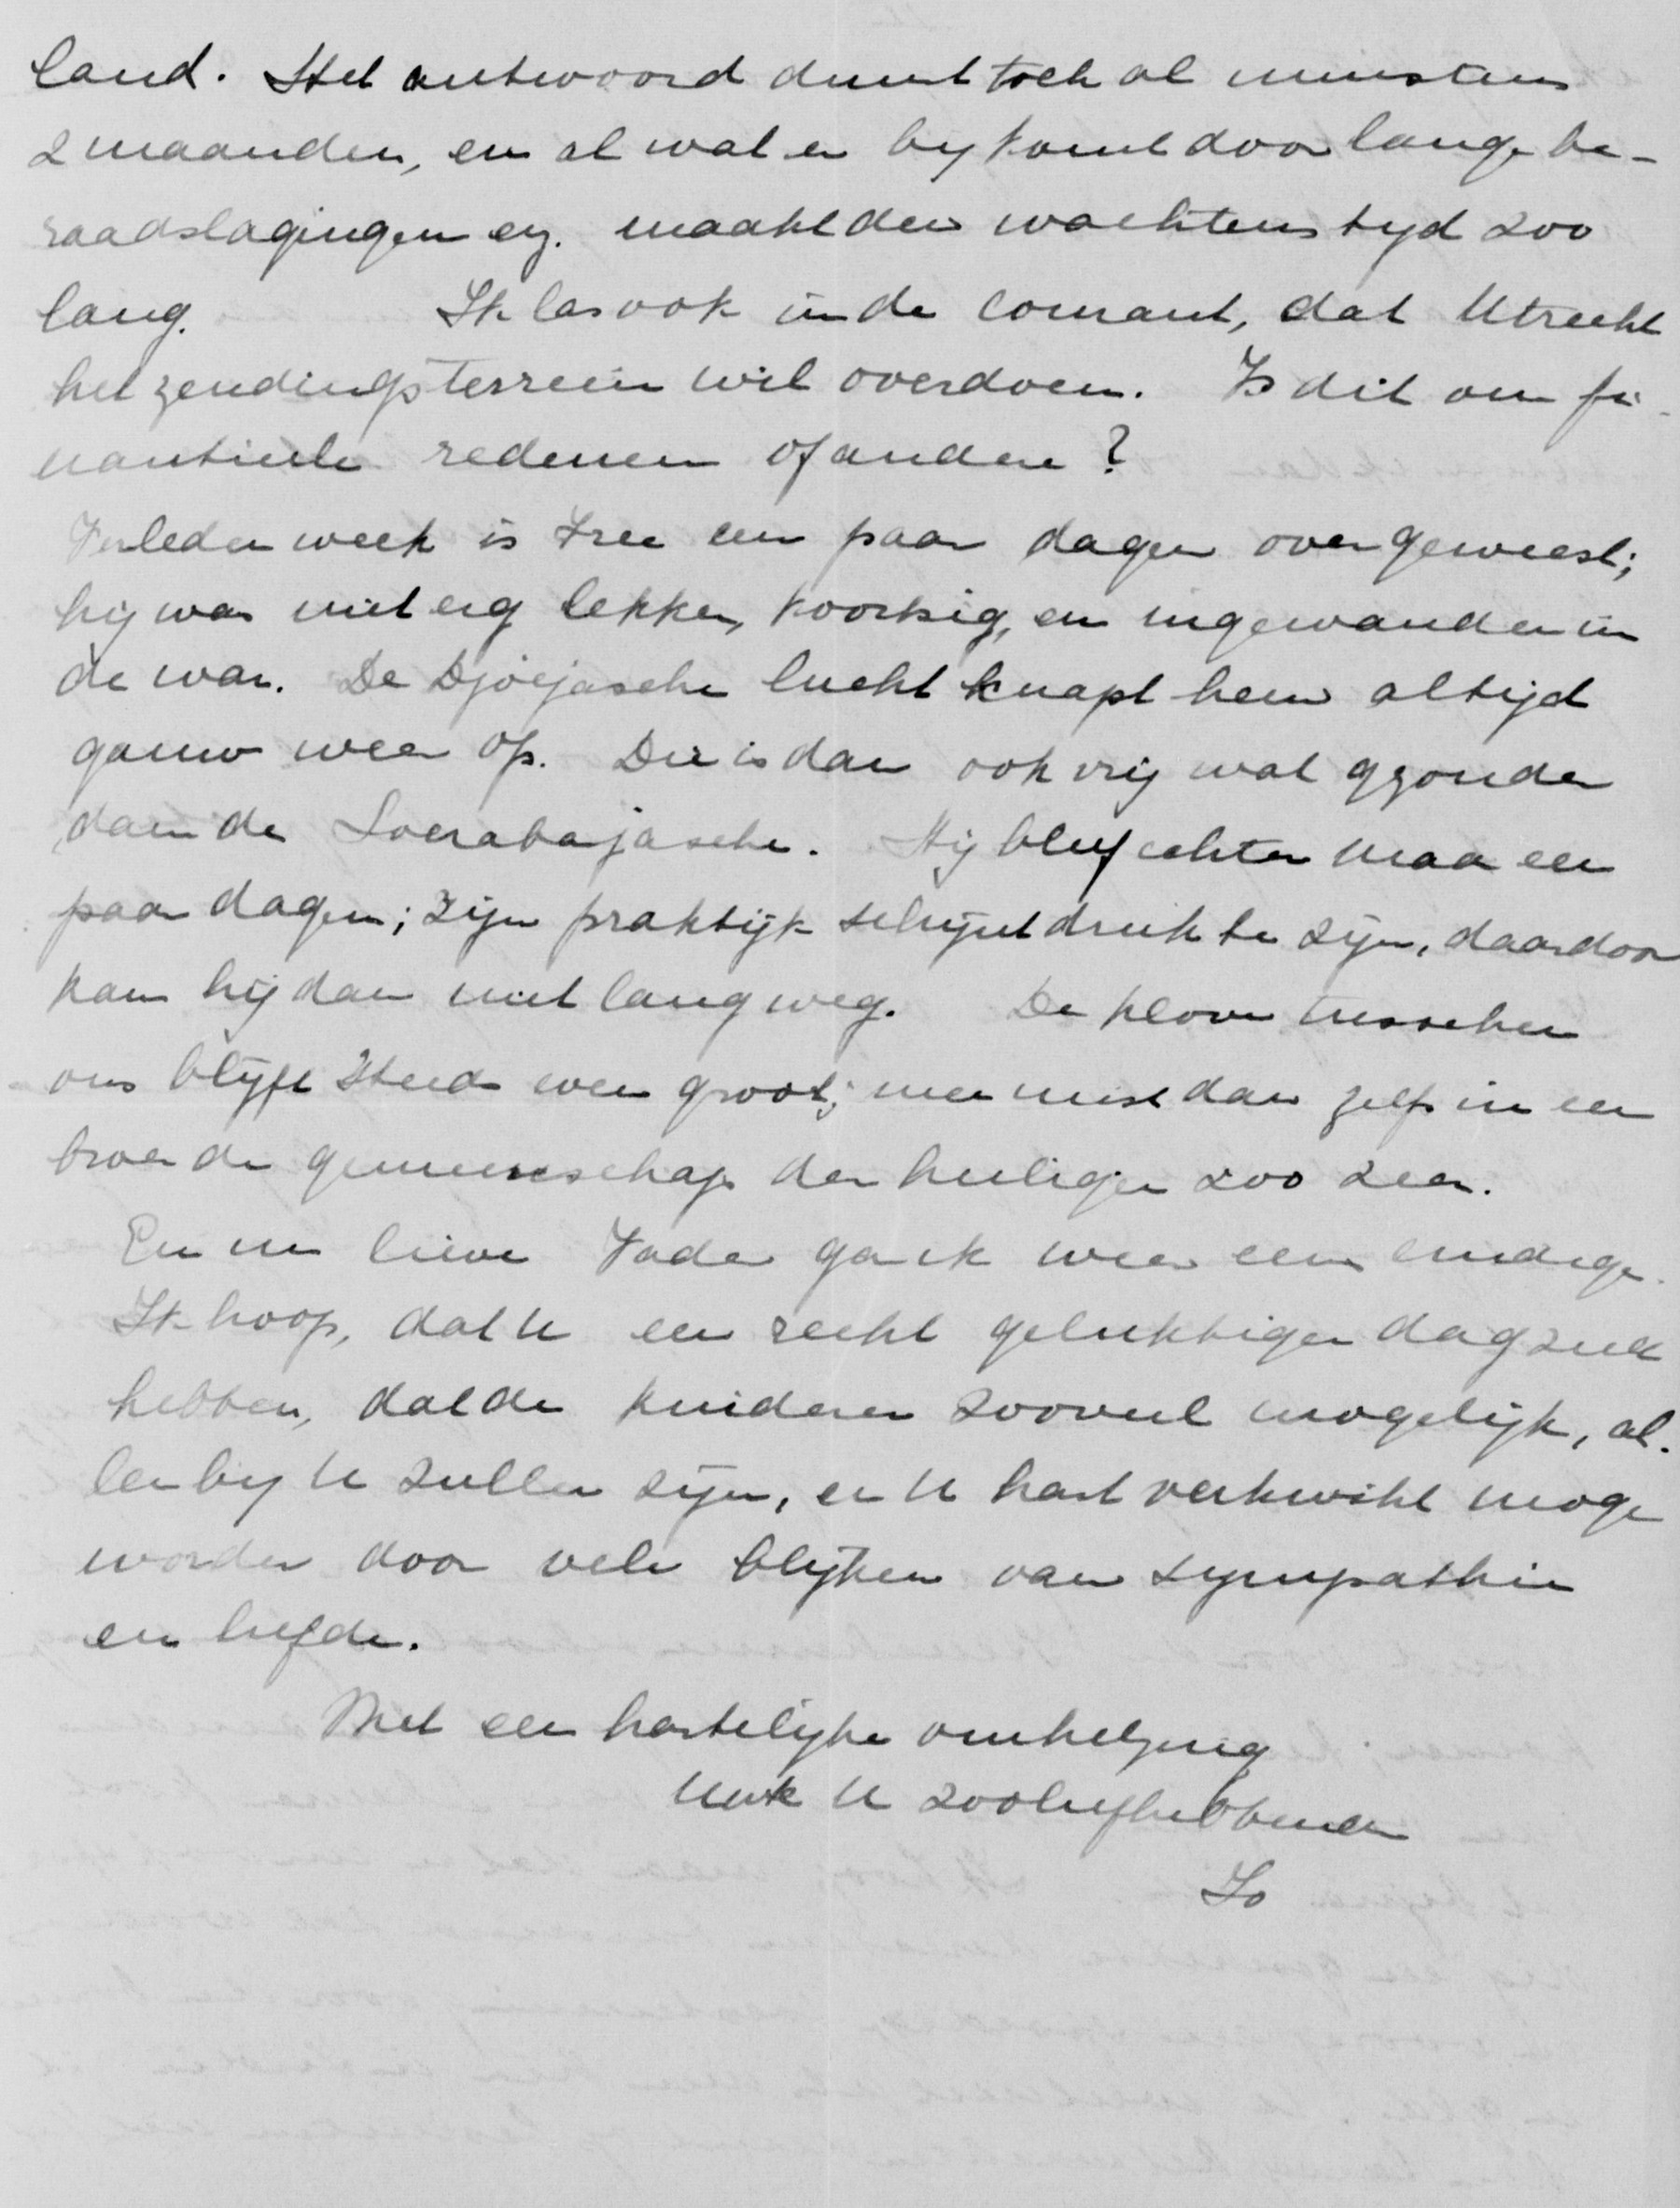 land. Het antwoord duurt toch al minstens
2 maanden, en al wat er by komt door lange be-
raadslagingen enz. maakt den wachtens tyd zoo
lang. Ik las ook in de courant, dat Utrecht
het zendingsterrein wil overdoen. Is dit om fi-
nantieele redenen of andere?
Verleden week is Free een paar dagen over geweest;
hij was niet erg lekker, koortsig, en ingewanden in
de war. De Djocjasche lucht knapt hem altijd
gauw weer op. Die is dan ook vrij wat gezonder
dan de Soerabajasche. Hij bleef echter maar een
paar dagen; zijn praktijk schijnt druk te zijn, daardoor
kan hij dan niet lang weg. De kloove tusschen
ons blijft steeds even groot; men mist dan zelfs in een
broer de gemeenschap der heiligen zoo zeer.
En nu lieve Vader ga ik weer een eindigen.
Ik hoop, dat U een recht gelukkigen dag zult
hebben, dat de kinderen zooveel mogelijk, al-
len by U zullen zijn, en U hart verkwikt moge
worden door vele blijken van sympathie
en liefde.
Met een hartelijke omhelzing
Uw U zoo liefhebbende
Jo